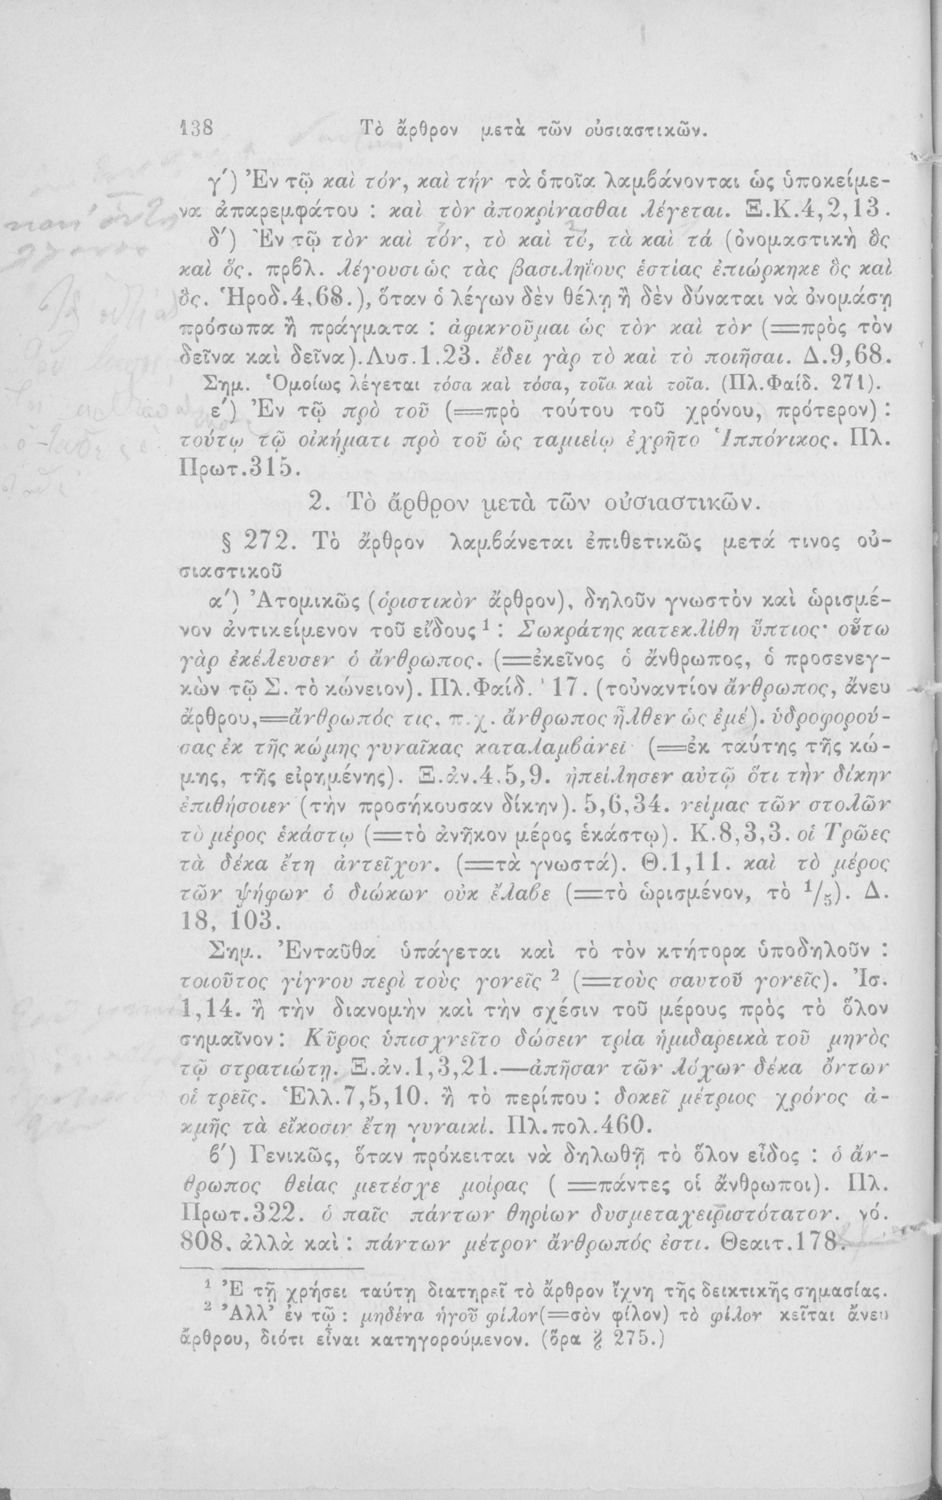 138 Τὸ ἄρθρον μετὰ τῶν οὐσιαστικῶν.
γ') Ἐν τῷ καὶ τόν, καὶ τήν τὰ ὁποῖα λαμβάνονται ὡς ὑποκείμε-
να ἀπαρεμφάτου : καὶ τὸν ἀποκρίνασθαι λέγεται. Ξ.Κ.4,2,13.
δ') Ἐν τῷ τὸν καὶ τόν, τὸ καὶ τό, τὰ καὶ τά (ὀνομαστικὴ ὃς
καὶ ὅς. πρβλ. λέγουσι ὡς τὰς βασιληΐους ἑστίας ἐπιώρκηκε ὃς καὶ
ὃς. Ἡροδ.4,68.), ὅταν ὁ λέγων δὲν θέλῃ ἢ δὲν δύναται νὰ ὀνομάσῃ
πρόσωπα ἢ πράγματα : ἀφικνοῦμαι ὡς τὸν καὶ τὸν (=πρὸς τὸν
δεῖνα καὶ δεῖνα).Λυσ.1.23. ἔδει γὰρ τὸ καὶ τὸ ποιῆσαι. Δ.9,68.
Σημ. Ὁμοίως λέγεται τόσα καὶ τόσα, τοῖα καὶ τοῖα. (Πλ.Φαίδ. 271).
ε') Ἐν τῷ πρὸ τοῦ (=πρὸ τούτου τοῦ χρόνου, πρότερον) :
τούτῳ τῷ οἰκήματι πρὸ τοῦ ὡς ταμιείῳ ἐχρῆτο Ἱππόνικος. Πλ.
Πρωτ.315.
2. Τὸ ἄρθρον μετὰ τῶν οὐσιαστικῶν.
§ 272. Τὸ ἄρθρον λαμβάνεται ἐπιθετικῶς μετά τινος οὐ-
σιαστικοῦ
α') Ἀτομικῶς (ὁριστικὸν ἄρθρον), δηλοῦν γνωστὸν καὶ ὡρισμέ-
νον ἀντικείμενον τοῦ εἴδους ¹ : Σωκράτης κατεκλίθη ὕπτιος· οὕτω
γὰρ ἐκέλευσεν ὁ ἄνθρωπος. (=ἐκεῖνος ὁ ἄνθρωπος, ὁ προσενεγ-
κὼν τῷ Σ. τὸ κώνειον). Πλ.Φαίδ. 117. (τοὐναντίον ἄνθρωπος, ἄνευ
ἄρθρου,=ἄνθρωπός τις. π.χ. ἄνθρωπος ἦλθεν ὡς ἐμέ). ὑδροφορού-
σας ἐκ τῆς κώμης γυναῖκας καταλαμβάνει (=ἐκ ταύτης τῆς κώ-
μης, τῆς εἰρημένης). Ξ.ἀν.4.5,9. ἠπείλησεν αὐτῷ ὅτι τὴν δίκην
ἐπιθήσοιεν (τὴν προσήκουσαν δίκην). 5,6,34. νείμας τῶν στολῶν
τὸ μέρος ἑκάστῳ (=τὸ ἀνῆκον μέρος ἑκάστῳ). Κ.8,3,3. οἱ Τρῶες
τὰ δέκα ἔτη ἀντεῖχον. (=τὰ γνωστά). Θ.1,11. καὶ τὸ μέρος
τῶν ψήφων ὁ διώκων οὐκ ἔλαβε (=τὸ ὡρισμένον, τὸ 1/5). Δ.
18, 103.
Σημ. Ἐνταῦθα ὑπάγεται καὶ τὸ τὸν κτήτορα ὑποδηλοῦν :
τοιοῦτος γίγνου περὶ τοὺς γονεῖς ² (=τοὺς σαυτοῦ γονεῖς). Ἰσ.
1,14. ἢ τὴν διανομὴν καὶ τὴν σχέσιν τοῦ μέρους πρὸς τὸ ὅλον
σημαῖνον : Κῦρος ὑπισχνεῖτο δώσειν τρία ἡμιδαρεικὰ τοῦ μηνὸς
τῷ στρατιώτῃ. Ξ.ἀν.1,3,21.—ἀπῆσαν τῶν λόχων δέκα ὄντων
οἱ τρεῖς. Ἑλλ.7,5,10. ἢ τὸ περίπου : δοκεῖ μέτριος χρόνος ἀ-
κμῆς τὰ εἴκοσιν ἔτη γυναικί. Πλ.πολ.460.
β') Γενικῶς, ὅταν πρόκειται νὰ δηλωθῇ τὸ ὅλον εἶδος : ὁ ἄν-
θρωπος θείας μετέσχε μοίρας ( =πάντες οἱ ἄνθρωποι). Πλ.
Πρωτ.322. ὁ παῖς πάντων θηρίων δυσμεταχειριστότατον. νό.
808. ἀλλὰ καὶ : πάντων μέτρον ἄνθρωπός ἐστι. Θεαιτ.178.
¹ Ἐ τῇ χρήσει ταύτῃ διατηρεῖ τὸ ἄρθρον ἴχνη τῆς δεικτικῆς σημασίας.
² Ἀλλ' ἐν τῷ : μηδένα ἡγοῦ φίλον(=σὸν φίλον) τὸ φίλον κεῖται ἄνευ
ἄρθρου, διότι εἶναι κατηγορούμενον. (ὅρα § 275.)